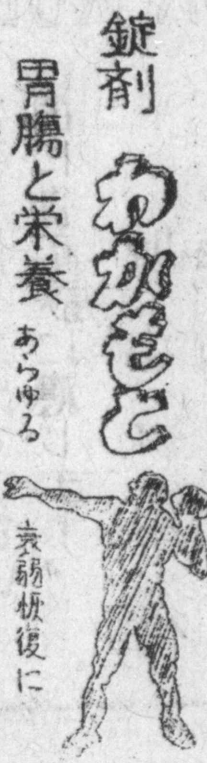 錠剤
わかもと
胃腸と栄養
あらゆる
衰弱恢復に